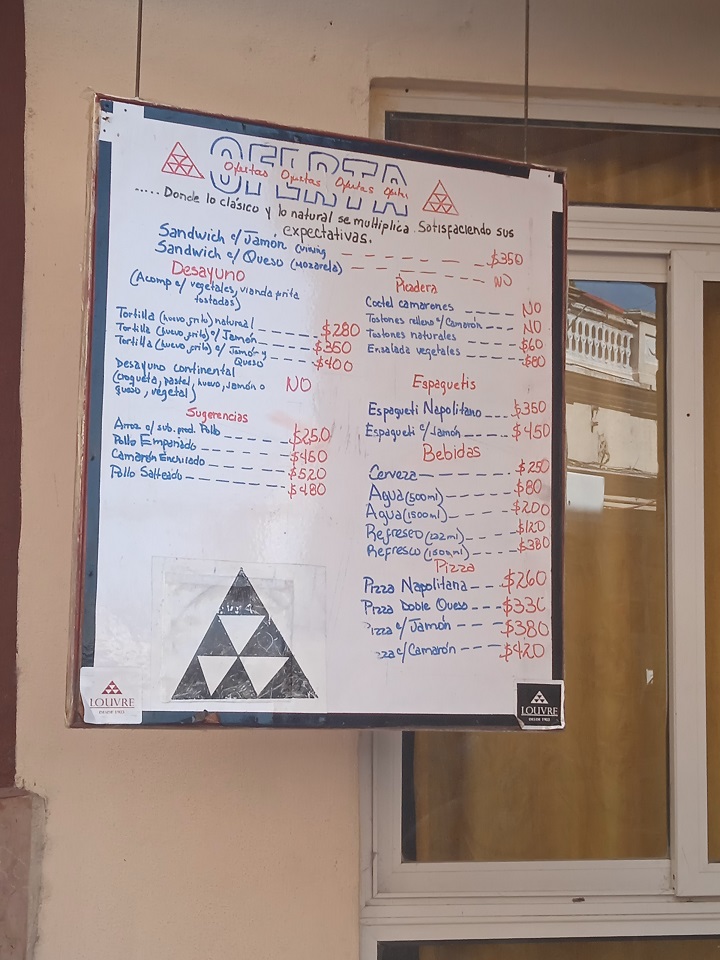 OFERTA
Ofertas Ofertas Ofertas
..... Donde lo clásico y lo natural se multiplica. Satisfaciendo sus
expectativas.
Sandwich c/Jamón (Viking) $350
Sandwich c/Queso (Mozarela) NO
Desayuno
(Acomp c/ vegetales, vianda frita
tostadas)
Tortilla (huevo frito) natural $280
Tortilla (huevo, frito) c/ Jamón $350
Tortilla (huevo, frito) c/ Jamón y
Queso $400
Desayuno continental
(croqueta, pastel, huevo, jamón o
queso, vegetal) NO
Sugerencias
Arroz c/ sub. prod. Pollo $250
Pollo Empanado $460
Camarón Enchilado $520
Pollo Salteado $480
Picadera
Coctel camarones NO
Tostones relleno c/Camarón NO
Tostones naturales $60
Ensalada vegetales $80
Espaguetis
Espagueti Napolitano $350
Espagueti c/Jamón $450
Bebidas
Cerveza $250
Agua (500ml) $80
Agua (1500ml) $200
Refresco $120
Refresco (1500ml) $380
Pizza
Pizza Napolitana $260
Pizza Doble Queso $330
Pizza c/Jamón $380
zza c/Camarón $420
LOUVRE
DESDE 1902
LOUVRE
DESDE 1902